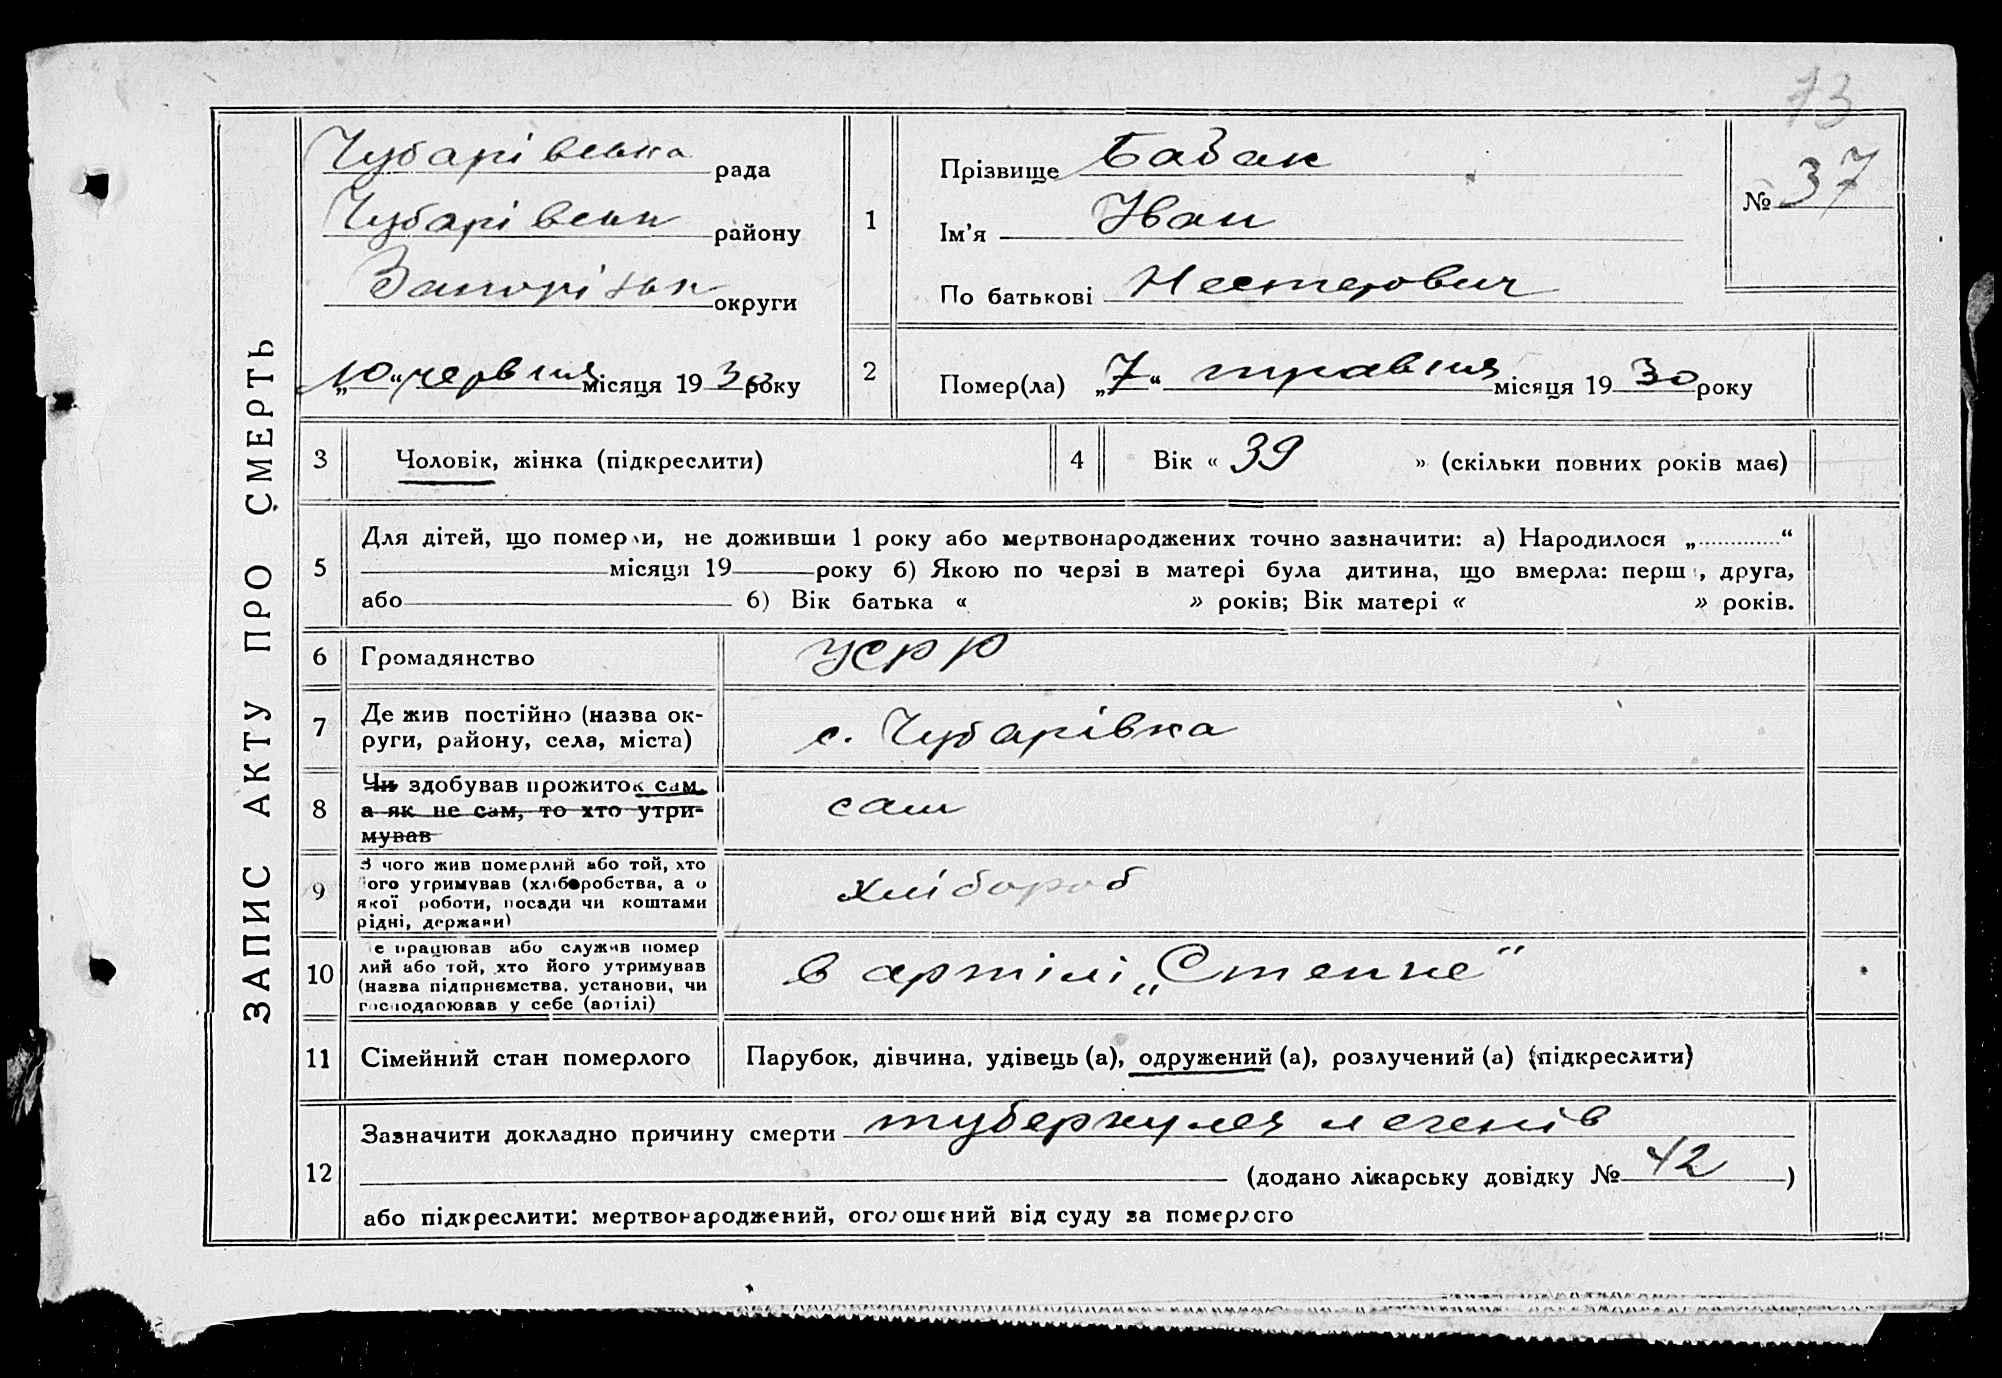 73
ЗАПИС АКТУ ПРО СМЕРТЬ
Чубарівська рада
Чубарівськ району
Запорізьк округи
„10“ червня місяця 1930 року
1
Прізвище Бабак
Ім'я Иван
По батькові Нестерович
№ 37
2
Помер(ла) „7“ травня місяця 1930 року
3 Чоловік, жінка (підкреслити)
4 Вік « 39 » (скільки повних років має)
5
Для дітей, що померли, не доживши 1 року або мертвонароджених точно зазначити: а) Народилося „ “
місяця 19 року б) Якою по черзі в матері була дитина, що вмерла: перша, друга,
або б) Вік батька « » років; Вік матері « » років.
6 Громадянство УСРР
7
Де жив постійно (назва ок-
руги, району, села, міста)
с. Чубарівка
8
Чи здобував прожиток сам,
а як не сам, то хто утри-
мував
сам
9
З чого жив померлий або той, хто
його утримував (хліборобства, а о
якої роботи, посади чи коштами
рідні, держави)
хлібороб
10
Де працював або служив помер
лий або той, хто його утримував
(назва підприємства, установи, чи
господарював у себе (артілі)
в артілі „Степне“
11 Сімейний стан померлого Парубок, дівчина, удівець (а), одружений (а), розлучений (а) (підкреслити)
12
Зазначити докладно причину смерти туберкулез легенів
(додано лікарську довідку № 42 )
або підкреслити: мертвонароджений, оголошений від суду за померлого